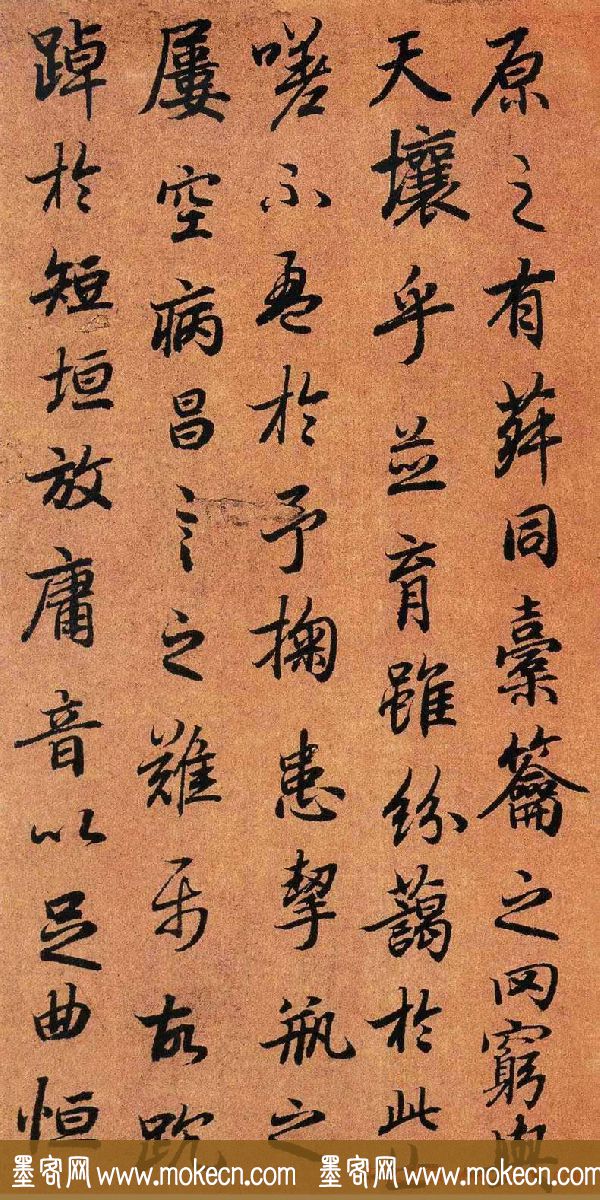 原之有菽同橐籥之罔窮
天壤乎並育雖紛藹於此
嗟不盈於予掬患挈瓶之
屢空病昌言之難属故踸
踔於短垣放庸音以足曲恒
墨客网 www.mokecn.com 墨客网 www.mokecn.com